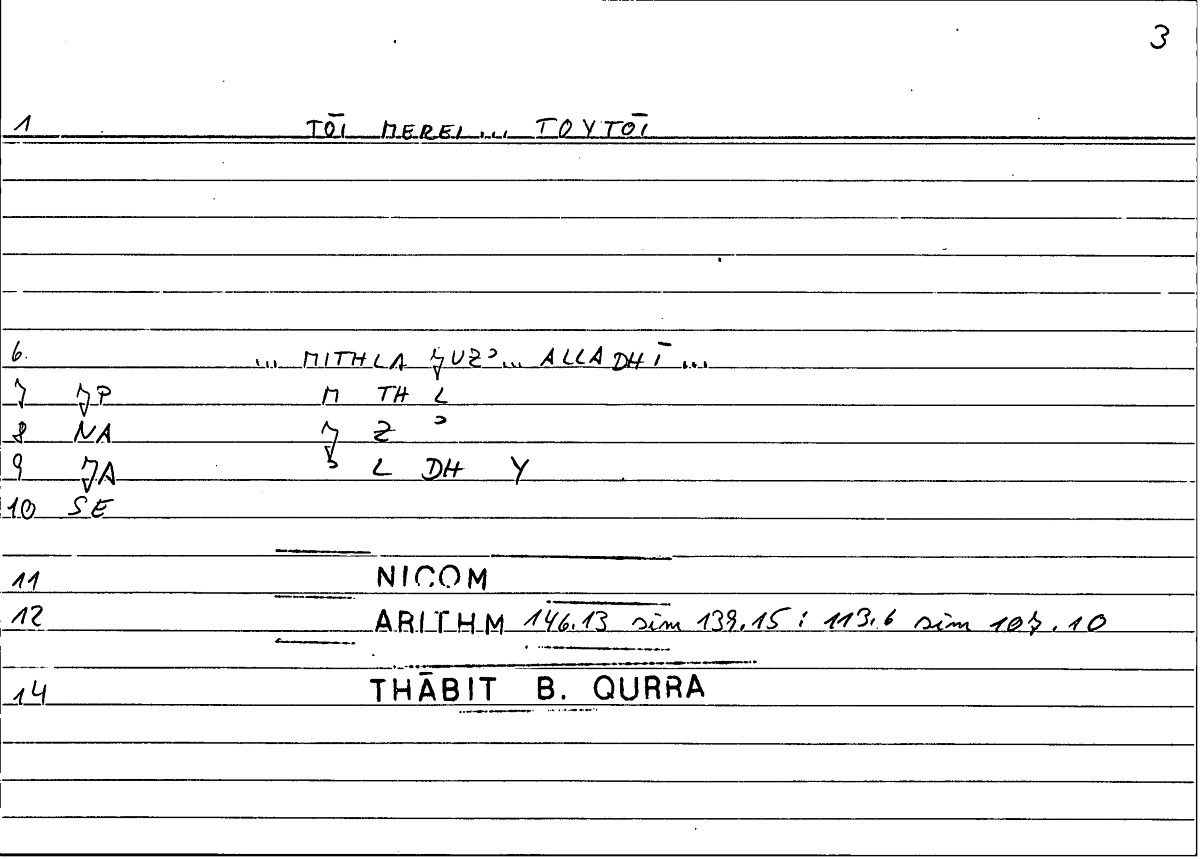 3
1 TŌI MEREI... TOYTŌI
6. ... MITHLA JUZʾ... ALLADHĪ ...
7 JP M TH L
8 NA J Z ʾ
9 JA ʾ L DH Y
10 SE
11 NICOM
12 ARITHM 146.13 sim 139.15 ; 113.6 sim 107.10
14 THĀBIT B. QURRA